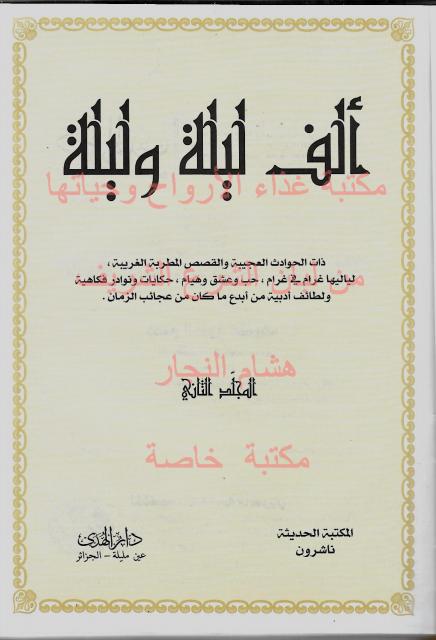 ألف ليلة وليلة
مكتبة غذاء الأرواح وحياتها
ذات الحوادث العجيبة والقصص المطربة الغريبة ،
لياليها غرام في غرام ، حب وعشق وهيام ، حكايات ونوادر فكاهية
ولطائف أدبية من أبدع ما كان من عجائب الزمان .
هشام النجار
المجلد الثاني
مكتبة خاصة
المكتبة الحديثة
ناشرون
دار الهدى
عين مليلة - الجزائر